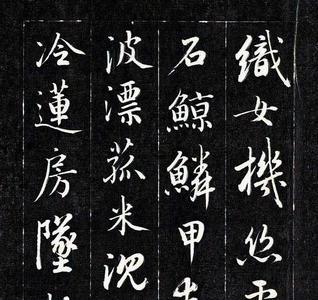 織女機絲
石鯨鱗甲
波漂菰米沉
冷蓮房墜